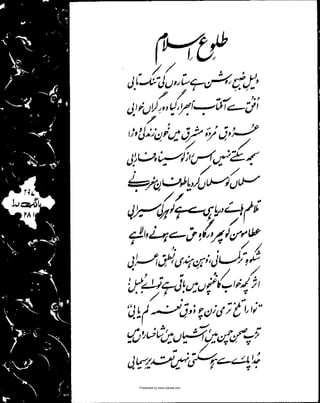 طلوعِ اسلام
دلیلِ صبحِ روشن ہے ستاروں کی تنک تابی
اُفق سے آفتاب اُبھرا، گیا دورِ گراں خوابی
عروقِ مُردۂ مشرق میں خونِ زندگی دوڑا
سمجھ سکتے نہیں اس راز کو سینا و فارابی
مسلماں کو مسلماں کر دیا طوفانِ مغرب نے
تلاطم ہائے دریا ہی سے ہے گوہر کی سیرابی
عطا مومن کو پھر درگاہِ حق سے ہونے والا ہے
شکوہِ ترکمانی، ذہنِ ہندی، نطقِ اعرابی
اثر کچھ خواب کا غنچوں میں باقی ہے تو اے بلبل!
"نوا را تلخ تر می زن چو ذوقِ نغمہ کم یابی"
تڑپ صحنِ چمن میں، آشیاں میں، شاخساروں میں
جُدا پارے سے ہو سکتی نہیں تقدیرِ سیمابی
بانگِ درا
۲۸۱
Presented by www.iqbalkalmati.com